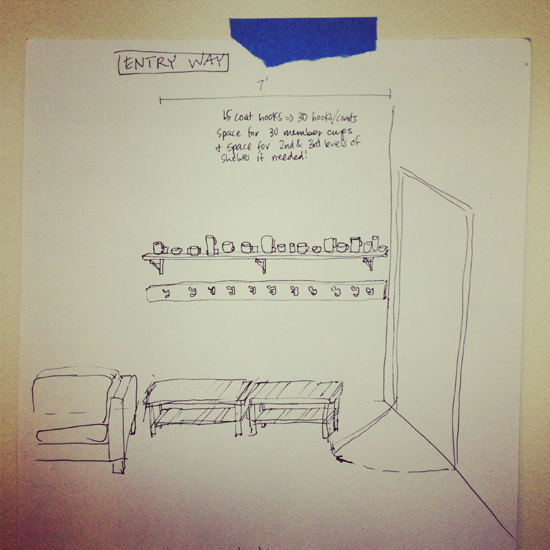 ENTRY WAY
7'
15 coat hooks ⇒ 30 hooks/coats
space for 30 member cups
+ space for 2nd & 3rd levels of
shelves if needed!